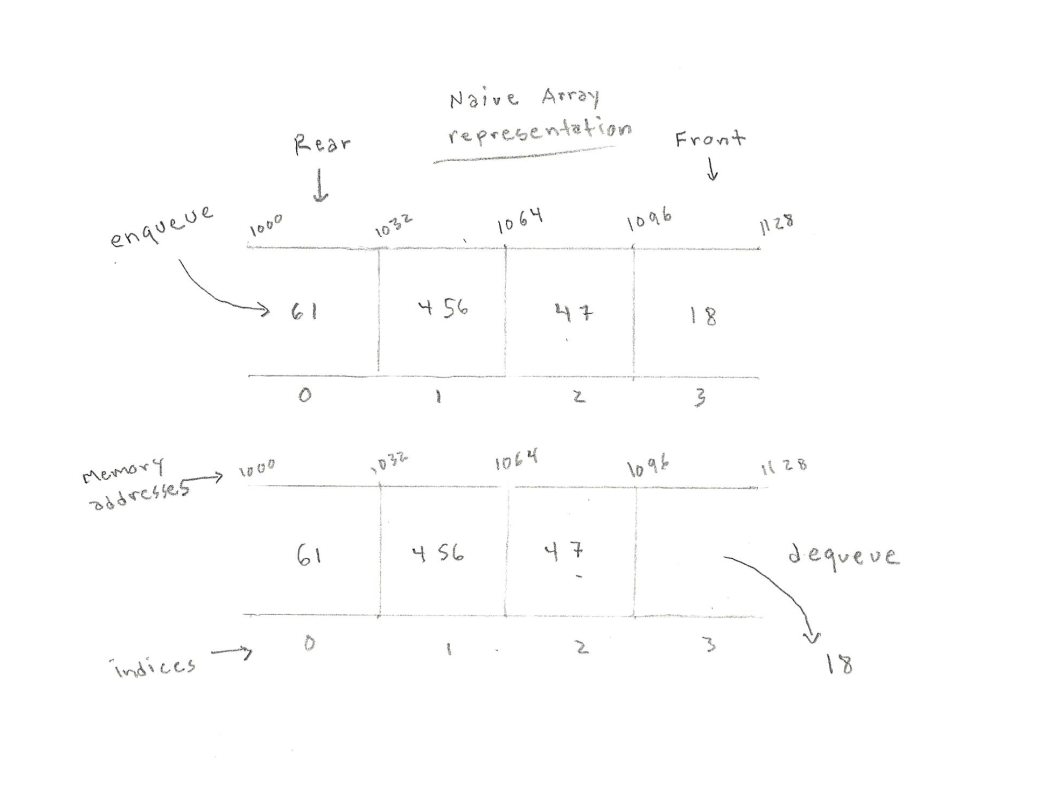 Naive Array
representation
Rear
Front
enqueue
1000 1032 1064 1096 1128
61 456 47 18
0 1 2 3
Memory
addresses
1000 1032 1064 1096 1128
61 456 47
dequeue
0 1 2 3
indices
18